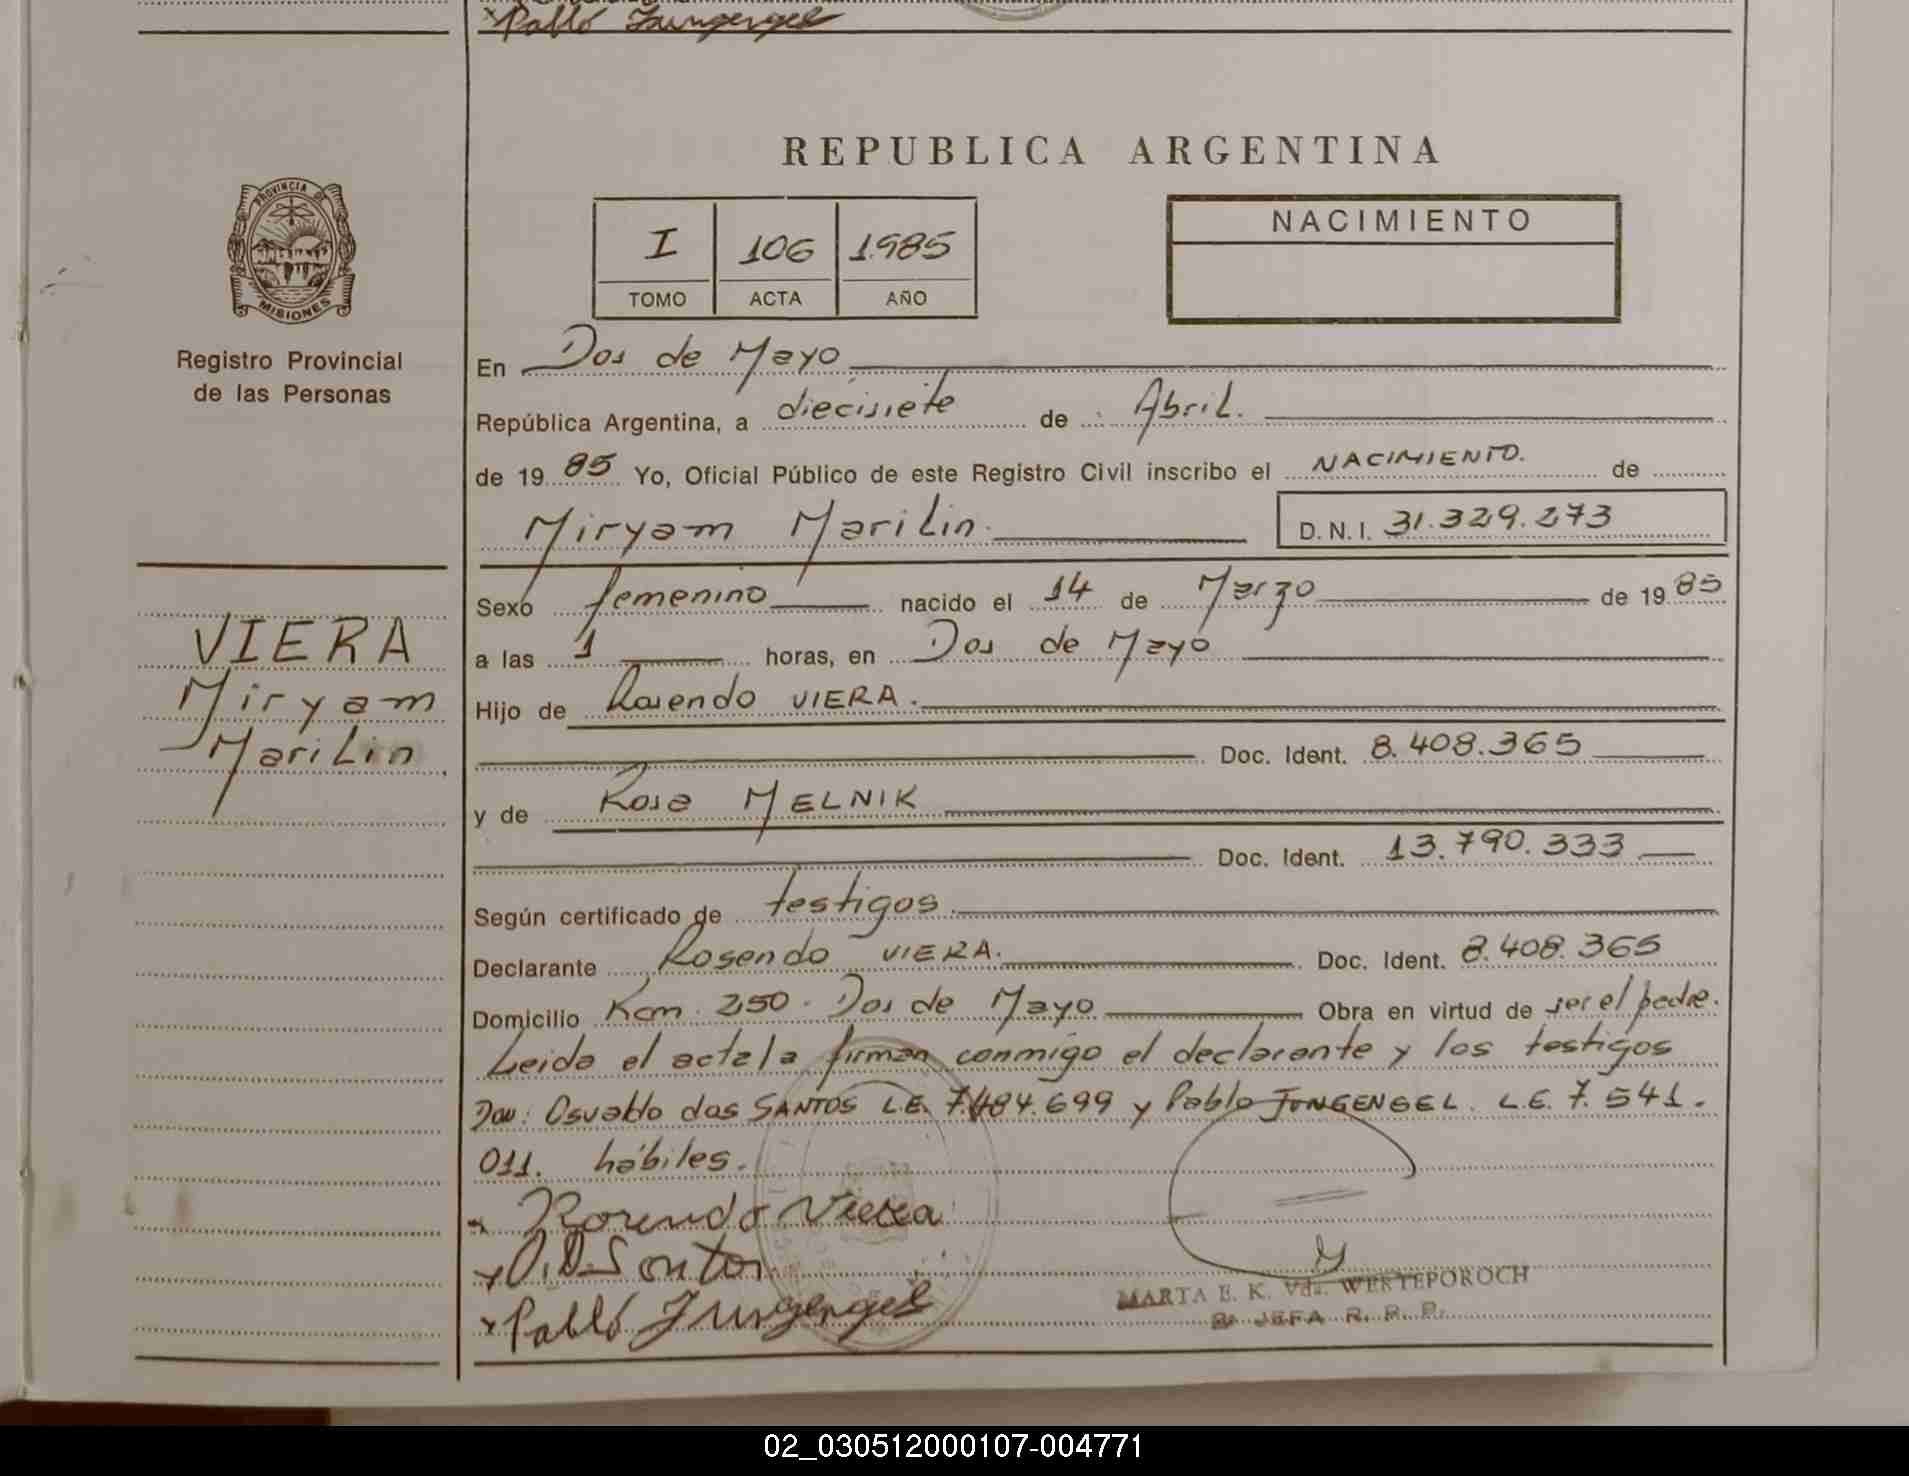 Pablo Jungengel
REPUBLICA ARGENTINA
PROVINCIA DE
MISIONES
Registro Provincial
de las Personas
I 106 1985
TOMO ACTA AÑO
NACIMIENTO
En Dos de Mayo
República Argentina, a diecisiete de Abril.
de 19 85 Yo, Oficial Público de este Registro Civil inscribo el NACIMIENTO. de
Miryam Marilin. D.N.I. 31.329.273
VIERA
Miryam
Marilin
Sexo femenino nacido el 14 de Marzo de 19 85
a las 1 horas, en Dos de Mayo
Hijo de Rosendo VIERA.
Doc. Ident. 8.408.365
y de Rosa MELNIK
Doc. Ident. 13.790.333
Según certificado de testigos.
Declarante Rosendo VIERA. Doc. Ident. 8.408.365
Domicilio Km. 250. Dos de Mayo Obra en virtud de ser el padre.
Leida el acta la firman conmigo el declarante y los testigos
Don: Osvaldo das SANTOS L.E. 7.484.699 y Pablo JUNGENGEL. L.E. 7.541.
011. hábiles.
x Rosendo Vieira
x O.D.Santos
x Pablo Jungengel
MARTA E. K. Vda. WERTEPOROCH
JEFA R. P. P.
02_030512000107-004771